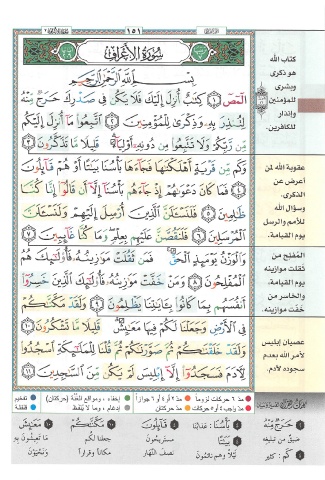 ١٥١
سُورَةُ الْأَعْرَافِ
بِسْمِ اللَّهِ الرَّحْمَٰنِ الرَّحِيمِ
الٓمٓصٓ ١ كِتَٰبٌ أُنزِلَ إِلَيْكَ فَلَا يَكُن فِي صَدْرِكَ حَرَجٌ مِّنْهُ
لِتُنذِرَ بِهِۦ وَذِكْرَىٰ لِلْمُؤْمِنِينَ ٢ ٱتَّبِعُوا۟ مَآ أُنزِلَ إِلَيْكُم
مِّن رَّبِّكُمْ وَلَا تَتَّبِعُوا۟ مِن دُونِهِۦٓ أَوْلِيَآءَ ۗ قَلِيلًا مَّا تَذَكَّرُونَ ٣
وَكَم مِّن قَرْيَةٍ أَهْلَكْنَٰهَا فَجَآءَهَا بَأْسُنَا بَيَٰتًا أَوْ هُمْ قَآئِلُونَ
٤ فَمَا كَانَ دَعْوَىٰهُمْ إِذْ جَآءَهُم بَأْسُنَآ إِلَّآ أَن قَالُوٓا۟ إِنَّا كُنَّا
ظَٰلِمِينَ ٥ فَلَنَسْـَٔلَنَّ ٱلَّذِينَ أُرْسِلَ إِلَيْهِمْ وَلَنَسْـَٔلَنَّ
ٱلْمُرْسَلِينَ ٦ فَلَنَقُصَّنَّ عَلَيْهِم بِعِلْمٍ ۖ وَمَا كُنَّا غَآئِبِينَ ٧
وَٱلْوَزْنُ يَوْمَئِذٍ ٱلْحَقُّ ۚ فَمَن ثَقُلَتْ مَوَٰزِينُهُۥ فَأُو۟لَٰٓئِكَ هُمُ
ٱلْمُفْلِحُونَ ٨ وَمَنْ خَفَّتْ مَوَٰزِينُهُۥ فَأُو۟لَٰٓئِكَ ٱلَّذِينَ خَسِرُوٓا۟
أَنفُسَهُم بِمَا كَانُوا۟ بِـَٔايَٰتِنَا يَظْلِمُونَ ٩ وَلَقَدْ مَكَّنَّٰكُمْ
فِي ٱلْأَرْضِ وَجَعَلْنَا لَكُمْ فِيهَا مَعَٰيِشَ ۗ قَلِيلًا مَّا تَشْكُرُونَ ١٠
وَلَقَدْ خَلَقْنَٰكُمْ ثُمَّ صَوَّرْنَٰكُمْ ثُمَّ قُلْنَا لِلْمَلَٰٓئِكَةِ ٱسْجُدُوا۟
لِـَٔادَمَ فَسَجَدُوٓا۟ إِلَّآ إِبْلِيسَ لَمْ يَكُن مِّنَ ٱلسَّٰجِدِينَ ١١
كتاب الله
هو ذكرى
وبشرى
للمؤمنين
وإنذار
للكافرين.
عقوبة الله لمن
أعرض عن
الذكرى،
وسؤال الله
للأمم والرسل
يوم القيامة.
المفلح من
ثقلت موازينه
يوم القيامة،
والخاسر من
خفت موازينه.
عصيان إبليس
لأمر الله بعدم
سجوده لآدم.
مد ٦ حركات لزوماً
مد ٢ أو ٤ أو ٦ جوازاً
إخفاء، ومواقع الغنة (حركتان)
تفخيم
مد واجب ٤ أو ٥ حركات
مد حركتان
إدغام، وما لا يلفظ
قلقلة
حَرَجٌ مِّنْهُ
ضيق من تبليغه
كَم : كثير
بَأْسُنَا : عذابنا
بَيَٰتًا
ليلاً وهم نائمون
قَآئِلُونَ
مستريحون
نصف النهار
مَكَّنَّٰكُمْ
جعلنا لكم
مكاناً وقراراً
مَعَٰيِشَ
ما تعيشون به
وتحيون